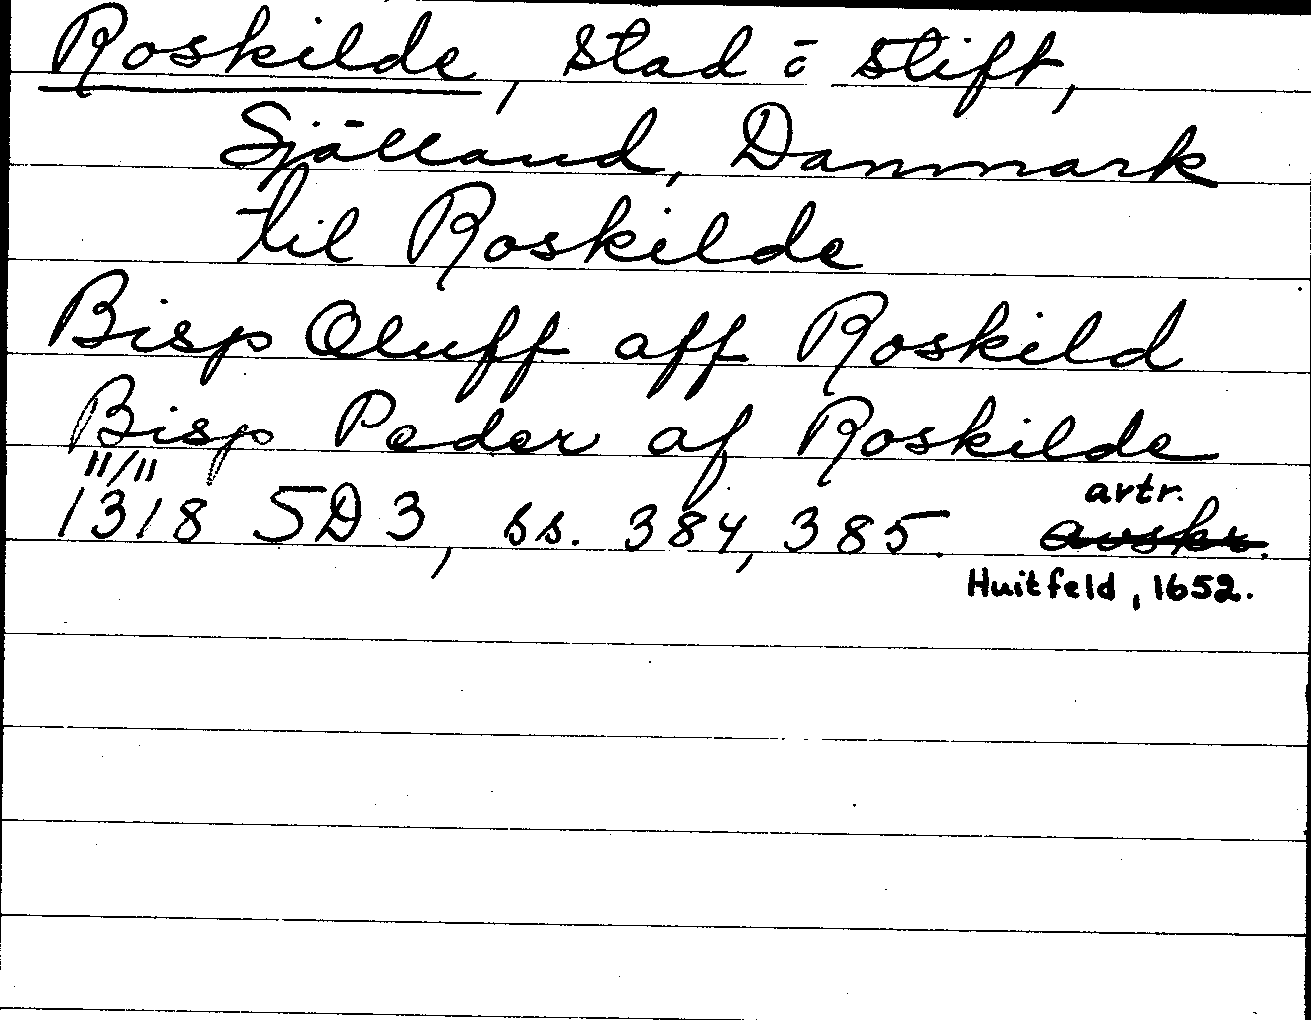 Roskilde, stad o stift,
Själland, Danmark
til Roskilde
Bisp Oluff aff Roskild
Bisp Peder af Roskilde
11/11
1318 SD 3, ss. 384, 385. avskr.
avtr.
Huitfeld, 1652.